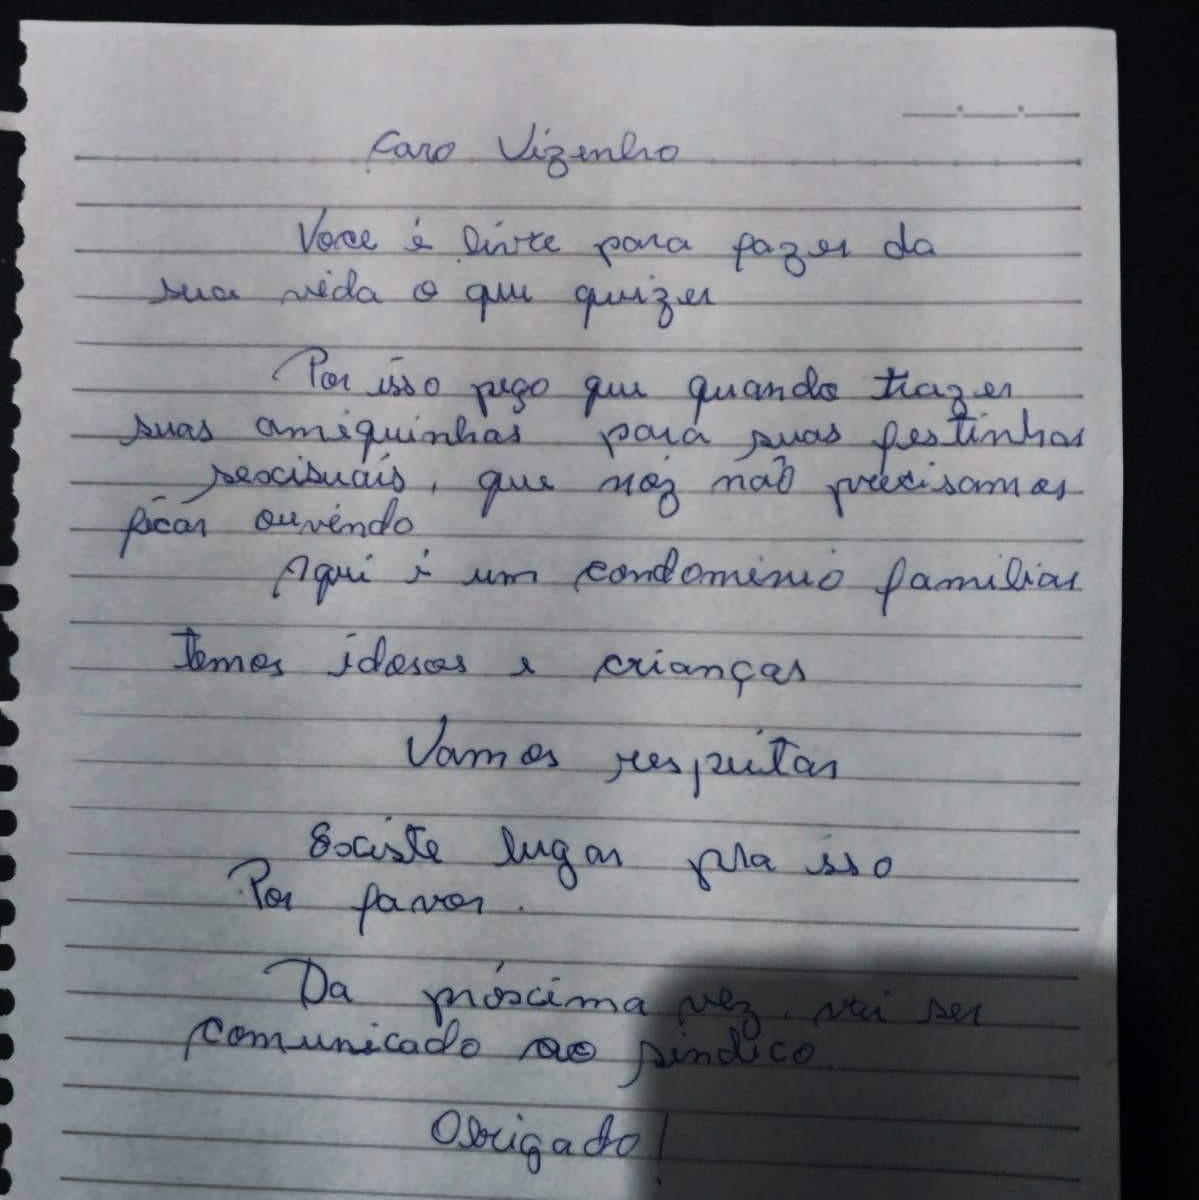 Caro Vizenho
Voce é livre para fazer da
sua vida o que quizer
Por isso peço que quando trazer
suas amiguinhas para suas festinhas
sexisuais, que nóz não precisamos
ficar ouvindo
Aqui é um condominio familiar
temos idosos e crianças
Vamos respeitar
Existe lugar pra isso
Por favor.
Da próxima vez, vai ser
comunicado ao sindico.
Obrigado!